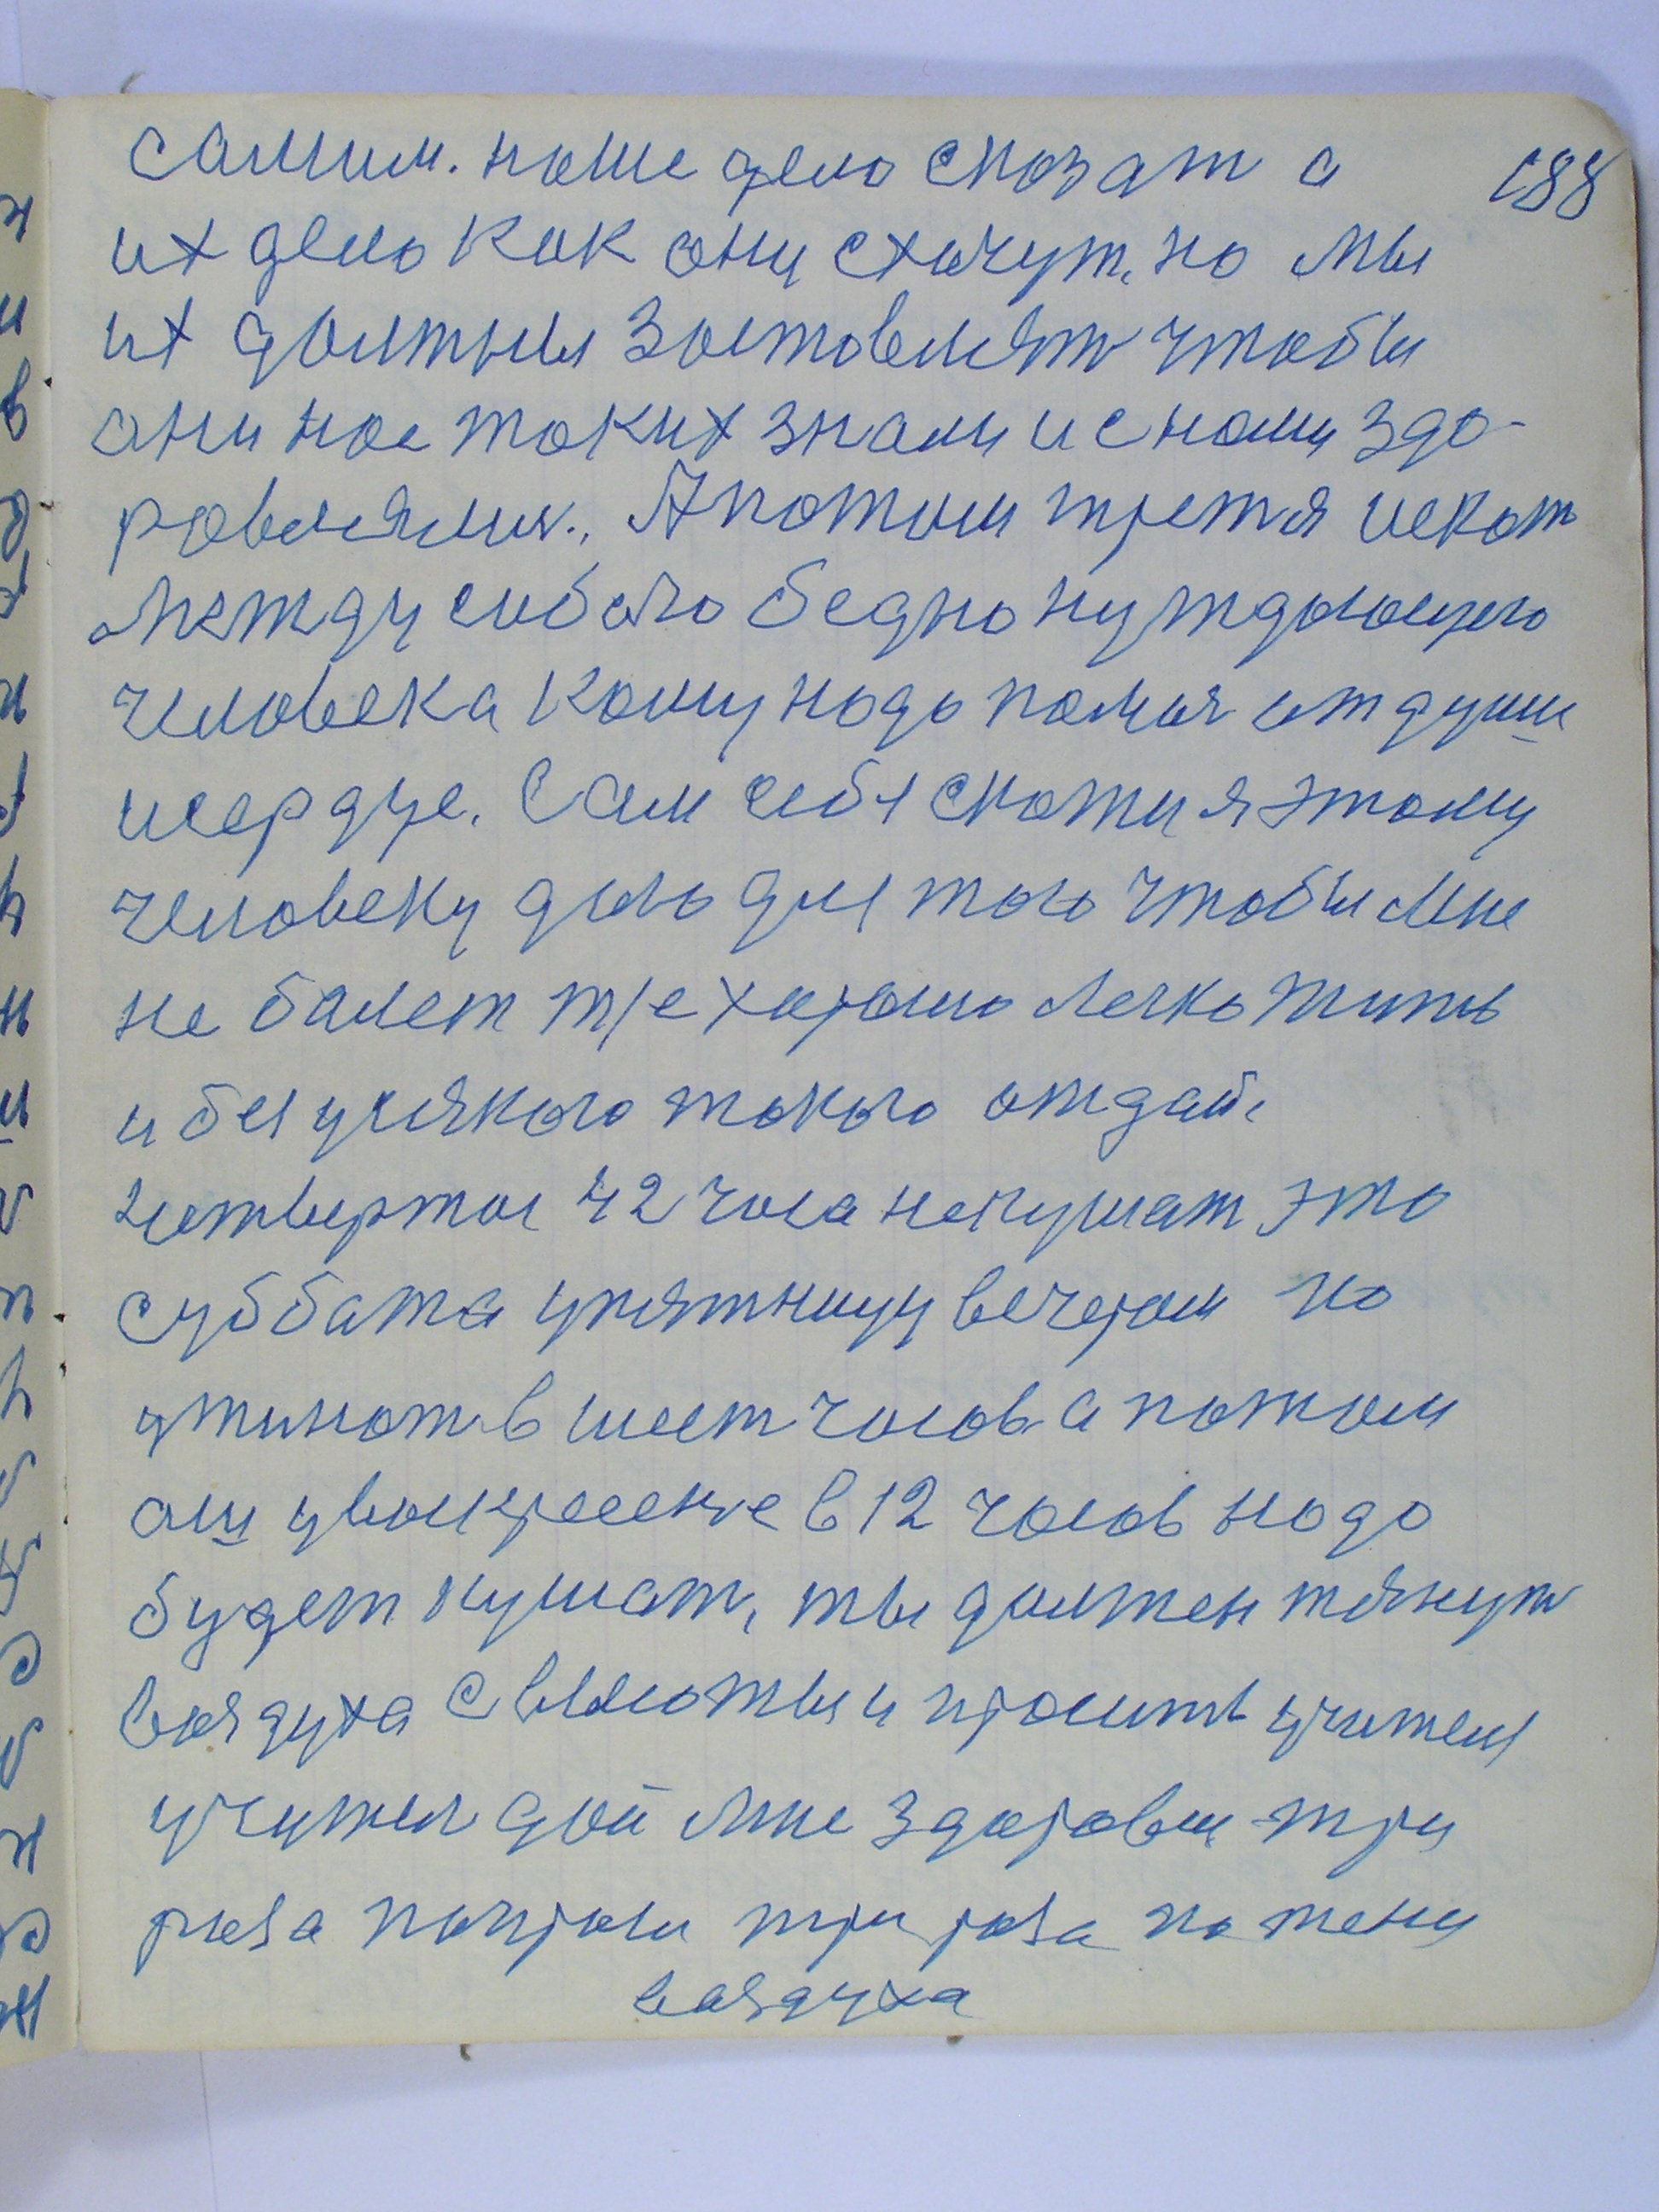 188
самим. наше дело сказат а
их дело как они схочут, но мы
их должны заставлять чтобы
они нас таких знали и с нами здо-
ровлялис., А потом третя искат
между собою бедно нуждающего
человека кому надо помоч от души
исердце. Сам себя скажи я этому
человеку даю для того чтобы мне
не балет
и без усякого такого отдай.
Четвертое 42 часа некушат это
суббата упятницу вечером по
ужинат в шест часов а потом
аш увоскресение в 12 часов надо
будет кушат, ты должен тянут
воздуха с высоты и просить учителя
учител дай мне здоровя три
раза попроси три раза потени
воздуха